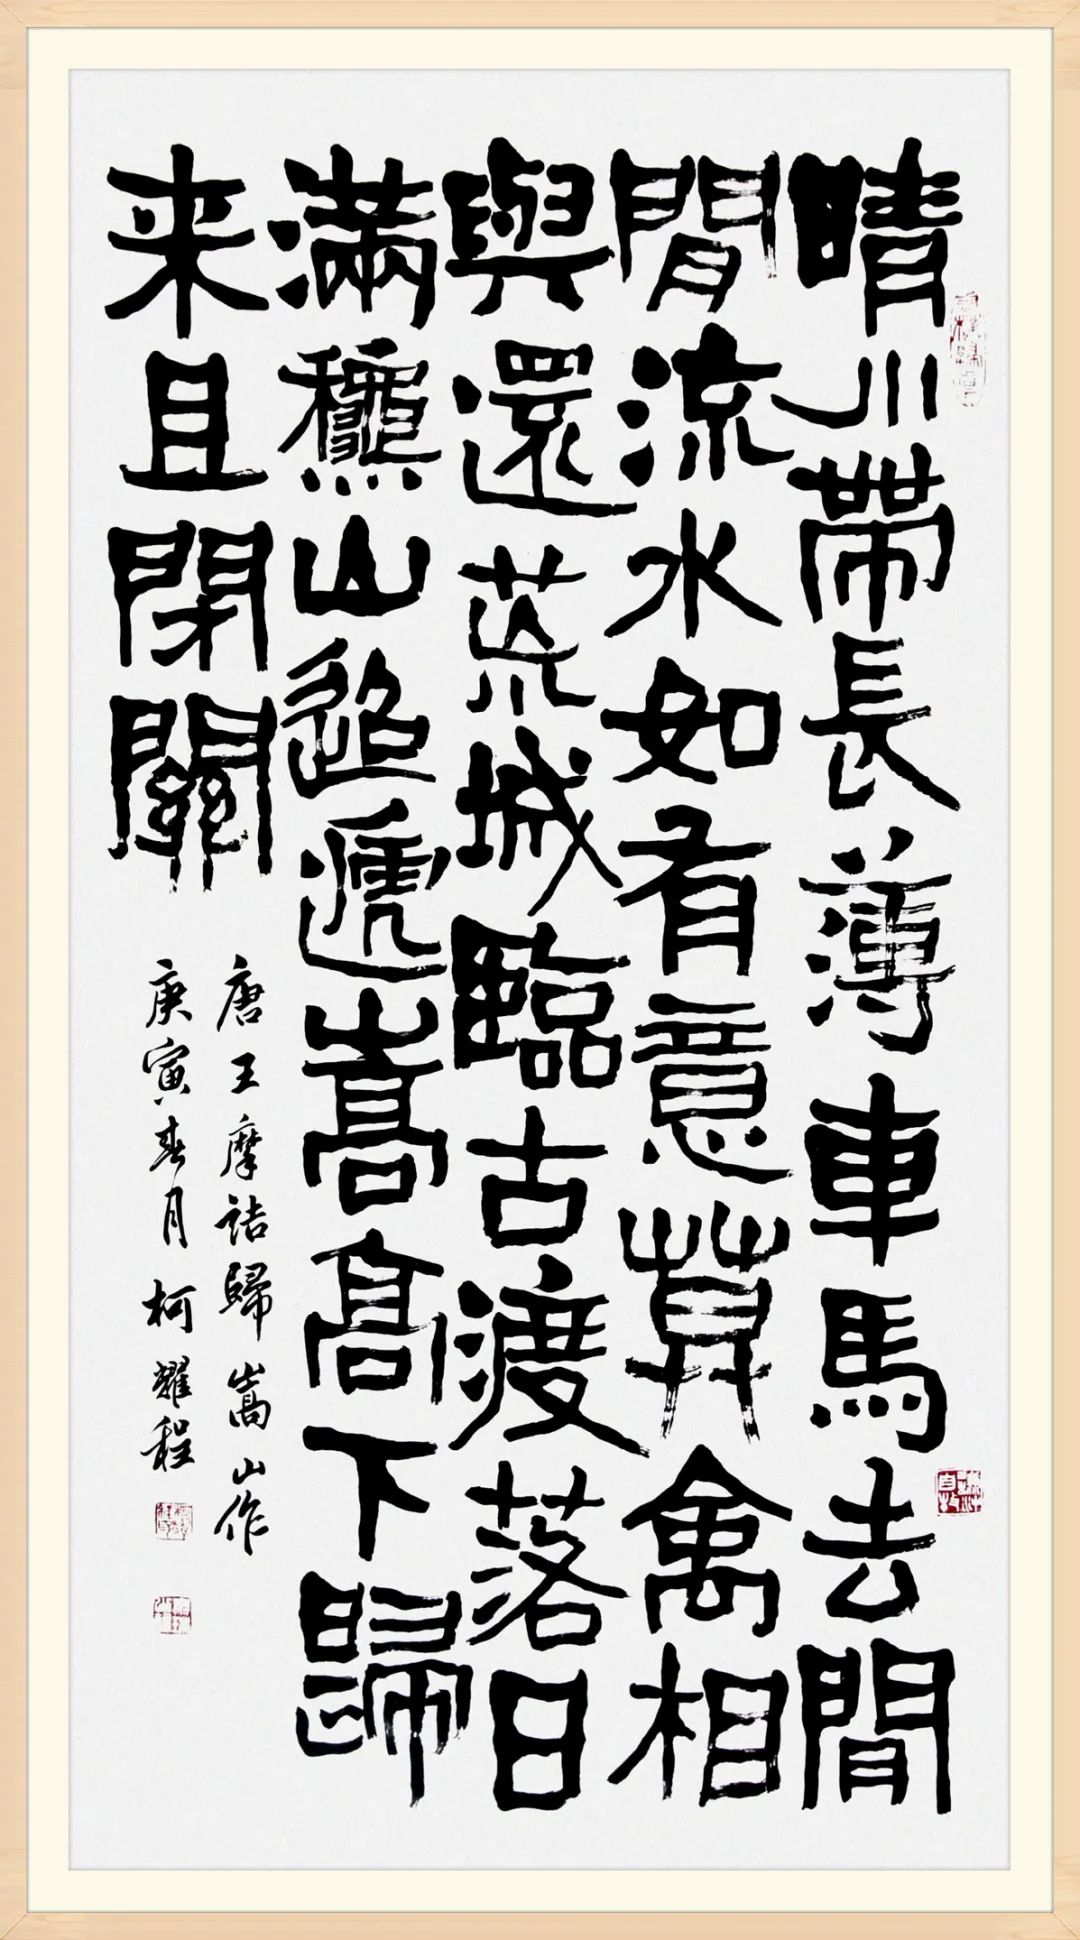 晴川帶長薄車馬去閒
閒流水如有意莫禽相
與還荒城臨古渡落日
滿穐山迢遞嵩高下歸
来且閉關
唐王摩詰歸嵩山作
庚寅春月柯耀程